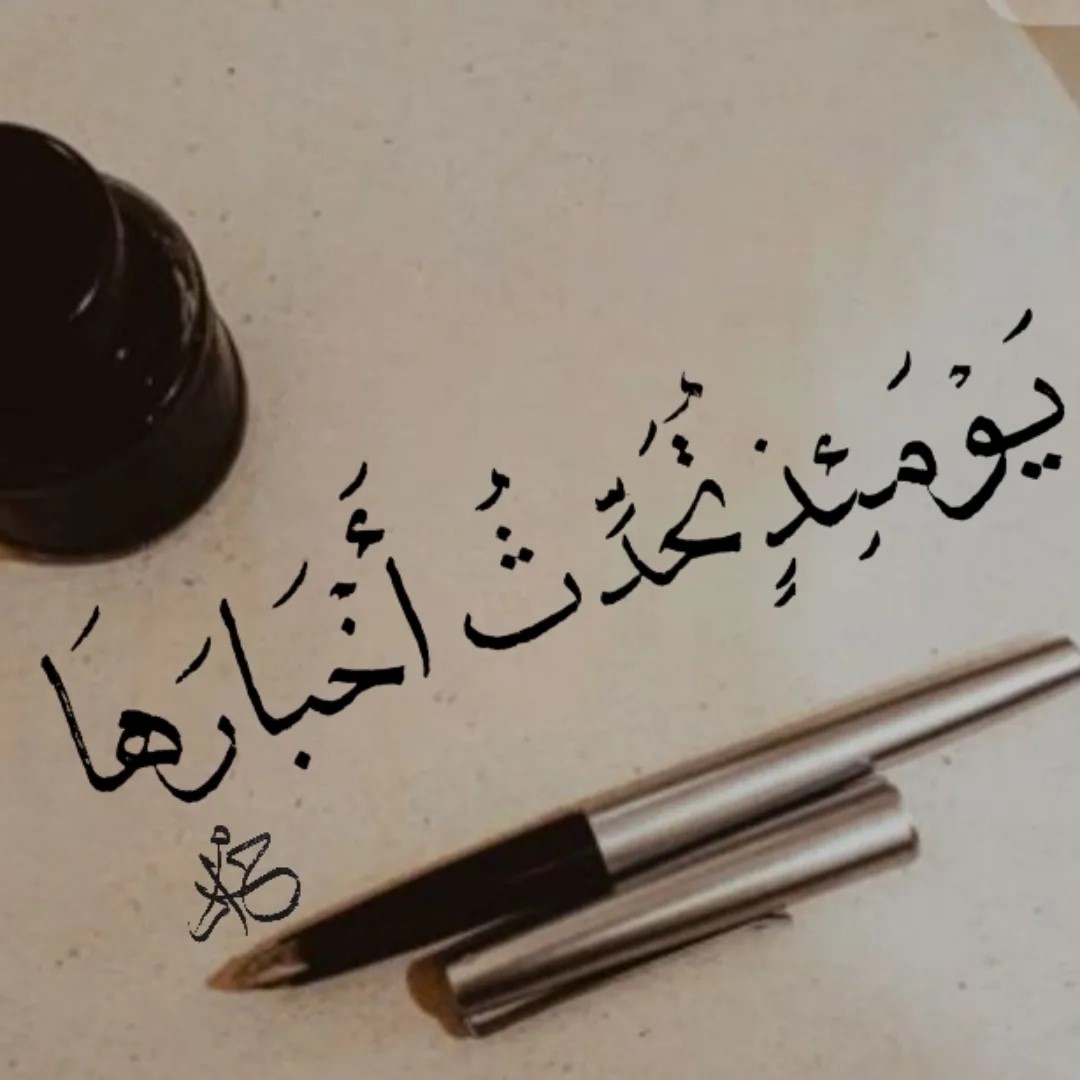 يَوْمَئِذٍ تُحَدِّثُ أَخْبَارَهَا